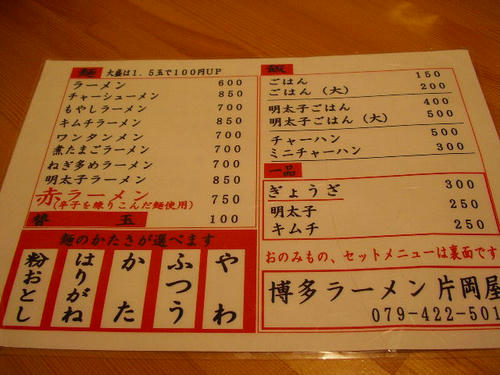 麺 大盛は1.5玉で100円UP
ラーメン 600
チャーシューメン 850
もやしラーメン 700
キムチラーメン 850
ワンタンメン 700
煮たまごラーメン 700
ねぎ多めラーメン 700
明太子ラーメン 850
赤ラーメン 750
(辛子を練りこんだ麺使用)
替玉 100
麺のかたさが選べます
粉おとし
はりがね
かた
ふつう
やわ
飯
ごはん 150
ごはん(大) 200
明太子ごはん 400
明太子ごはん(大) 500
チャーハン 500
ミニチャーハン 300
一品
ぎょうざ 300
明太子 250
キムチ 250
おのみもの、セットメニューは裏面です
博多ラーメン 片岡屋
079-422-501